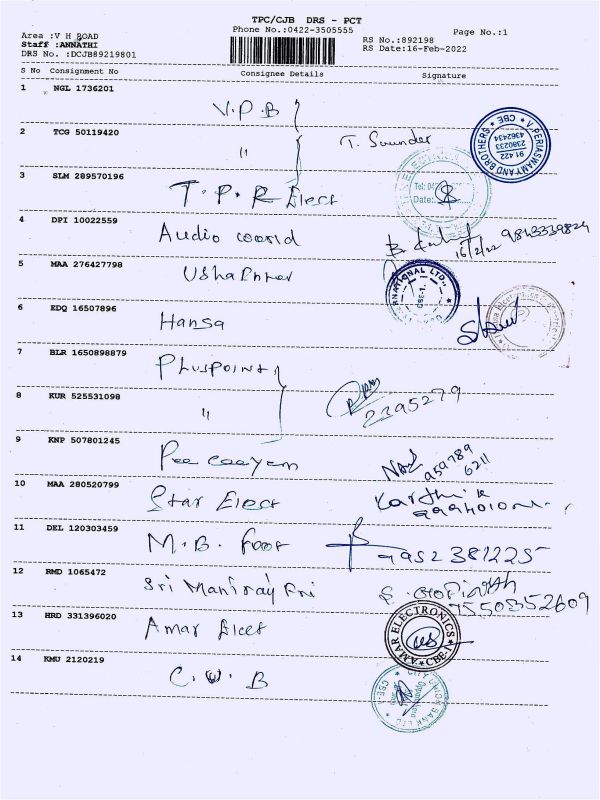 TPC/CJB DRS - PCT
Phone No.:0422-3505555
Page No.:1
Area :V H ROAD
Staff :ANNATHI
DRS No. :DCJB89219801
RS No.:892198
RS Date:16-Feb-2022
S No Consignment No Consignee Details Signature
1 NGL 1736201 V.P.B
2 TCG 50119420 " T. Sounder
V. PERIASWAMY AND BROTHERS * CBE *
91 422
2380233
4362434
3 SLM 289570196 T.P.R Elect
Tel: 04
Date:
4 DPI 10022559 Audio world
16/2/22 9843339824
5 MAA 276427798 Usha
RNATIONAL LTD.,
CBE-1.
6 EDQ 16507896 Hansa
7 BLR 1650898879 Pluspoint
8 KUR 525531098 " 2395279
9 KNP 507801245 Pee Caayem
959789
6211
10 MAA 280520799 Star Elect Karthik
11 DEL 120303459 M.B. Foot 9952381225
12 RMD 1065472 Sri Maniraj Fni S. Gopinath
7550352609
13 HRD 331396020 Amar Elect
AMAR ELECTRONICS * CBE-1 *
14 KMU 2120219 C.U.B
CITY UNION BANK LTD * CBE-1